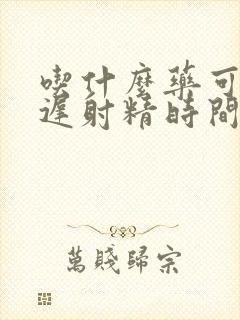 喫什麼藥可
遲射精時間
萬賤歸宗